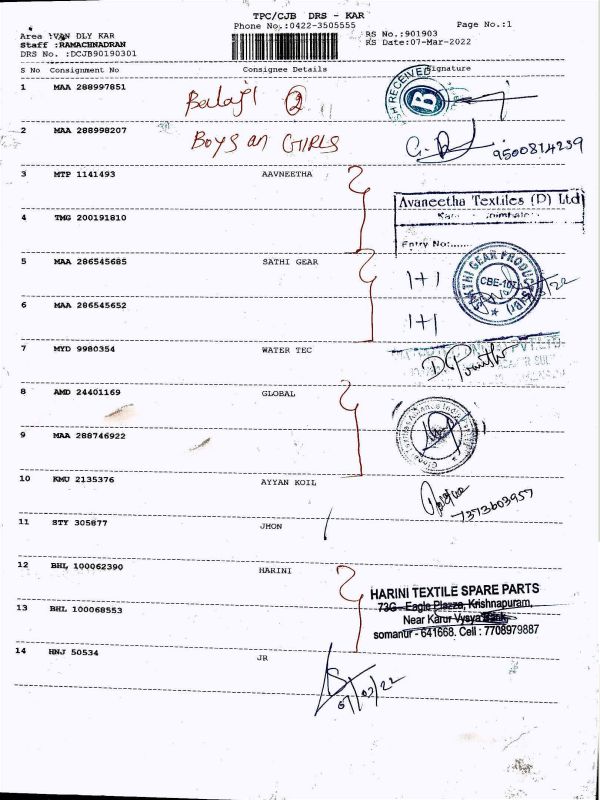 TPC/CJB DRS - KAR
Phone No.:0422-3505555
Page No.:1
Area :VAN DLY KAR
RS No.:901903
Staff :RAMACHNADRAN
RS Date:07-Mar-2022
DRS No. :DCJB90190301
S No Consignment No Consignee Details Signature
1 MAA 288997851 Balaji 2
RECEIVED
B
2 MAA 288998207 BOYS an GIRLS
9500814239
3 MTP 1141493 AAVNEETHA
Avaneetha Textiles (P) Ltd
4 TMG 200191810
Entry No:......
5 MAA 286545685 SATHI GEAR 1+1
CBE-107
6 MAA 286545652 1+1
7 MYD 9980354 WATER TEC
8 AMD 24401169 GLOBAL
9 MAA 288746922
10 KMU 2135376 AYYAN KOIL
7373603957
11 STY 305877 JHON
12 BHL 100062390 HARINI
HARINI TEXTILE SPARE PARTS
73G - Eagle Plazza, Krishnapuram,
13 BHL 100068553
Near Karur Vysya Bank
somanur - 641668. Cell : 7708979887
14 HNJ 50534 JR
07/03/22